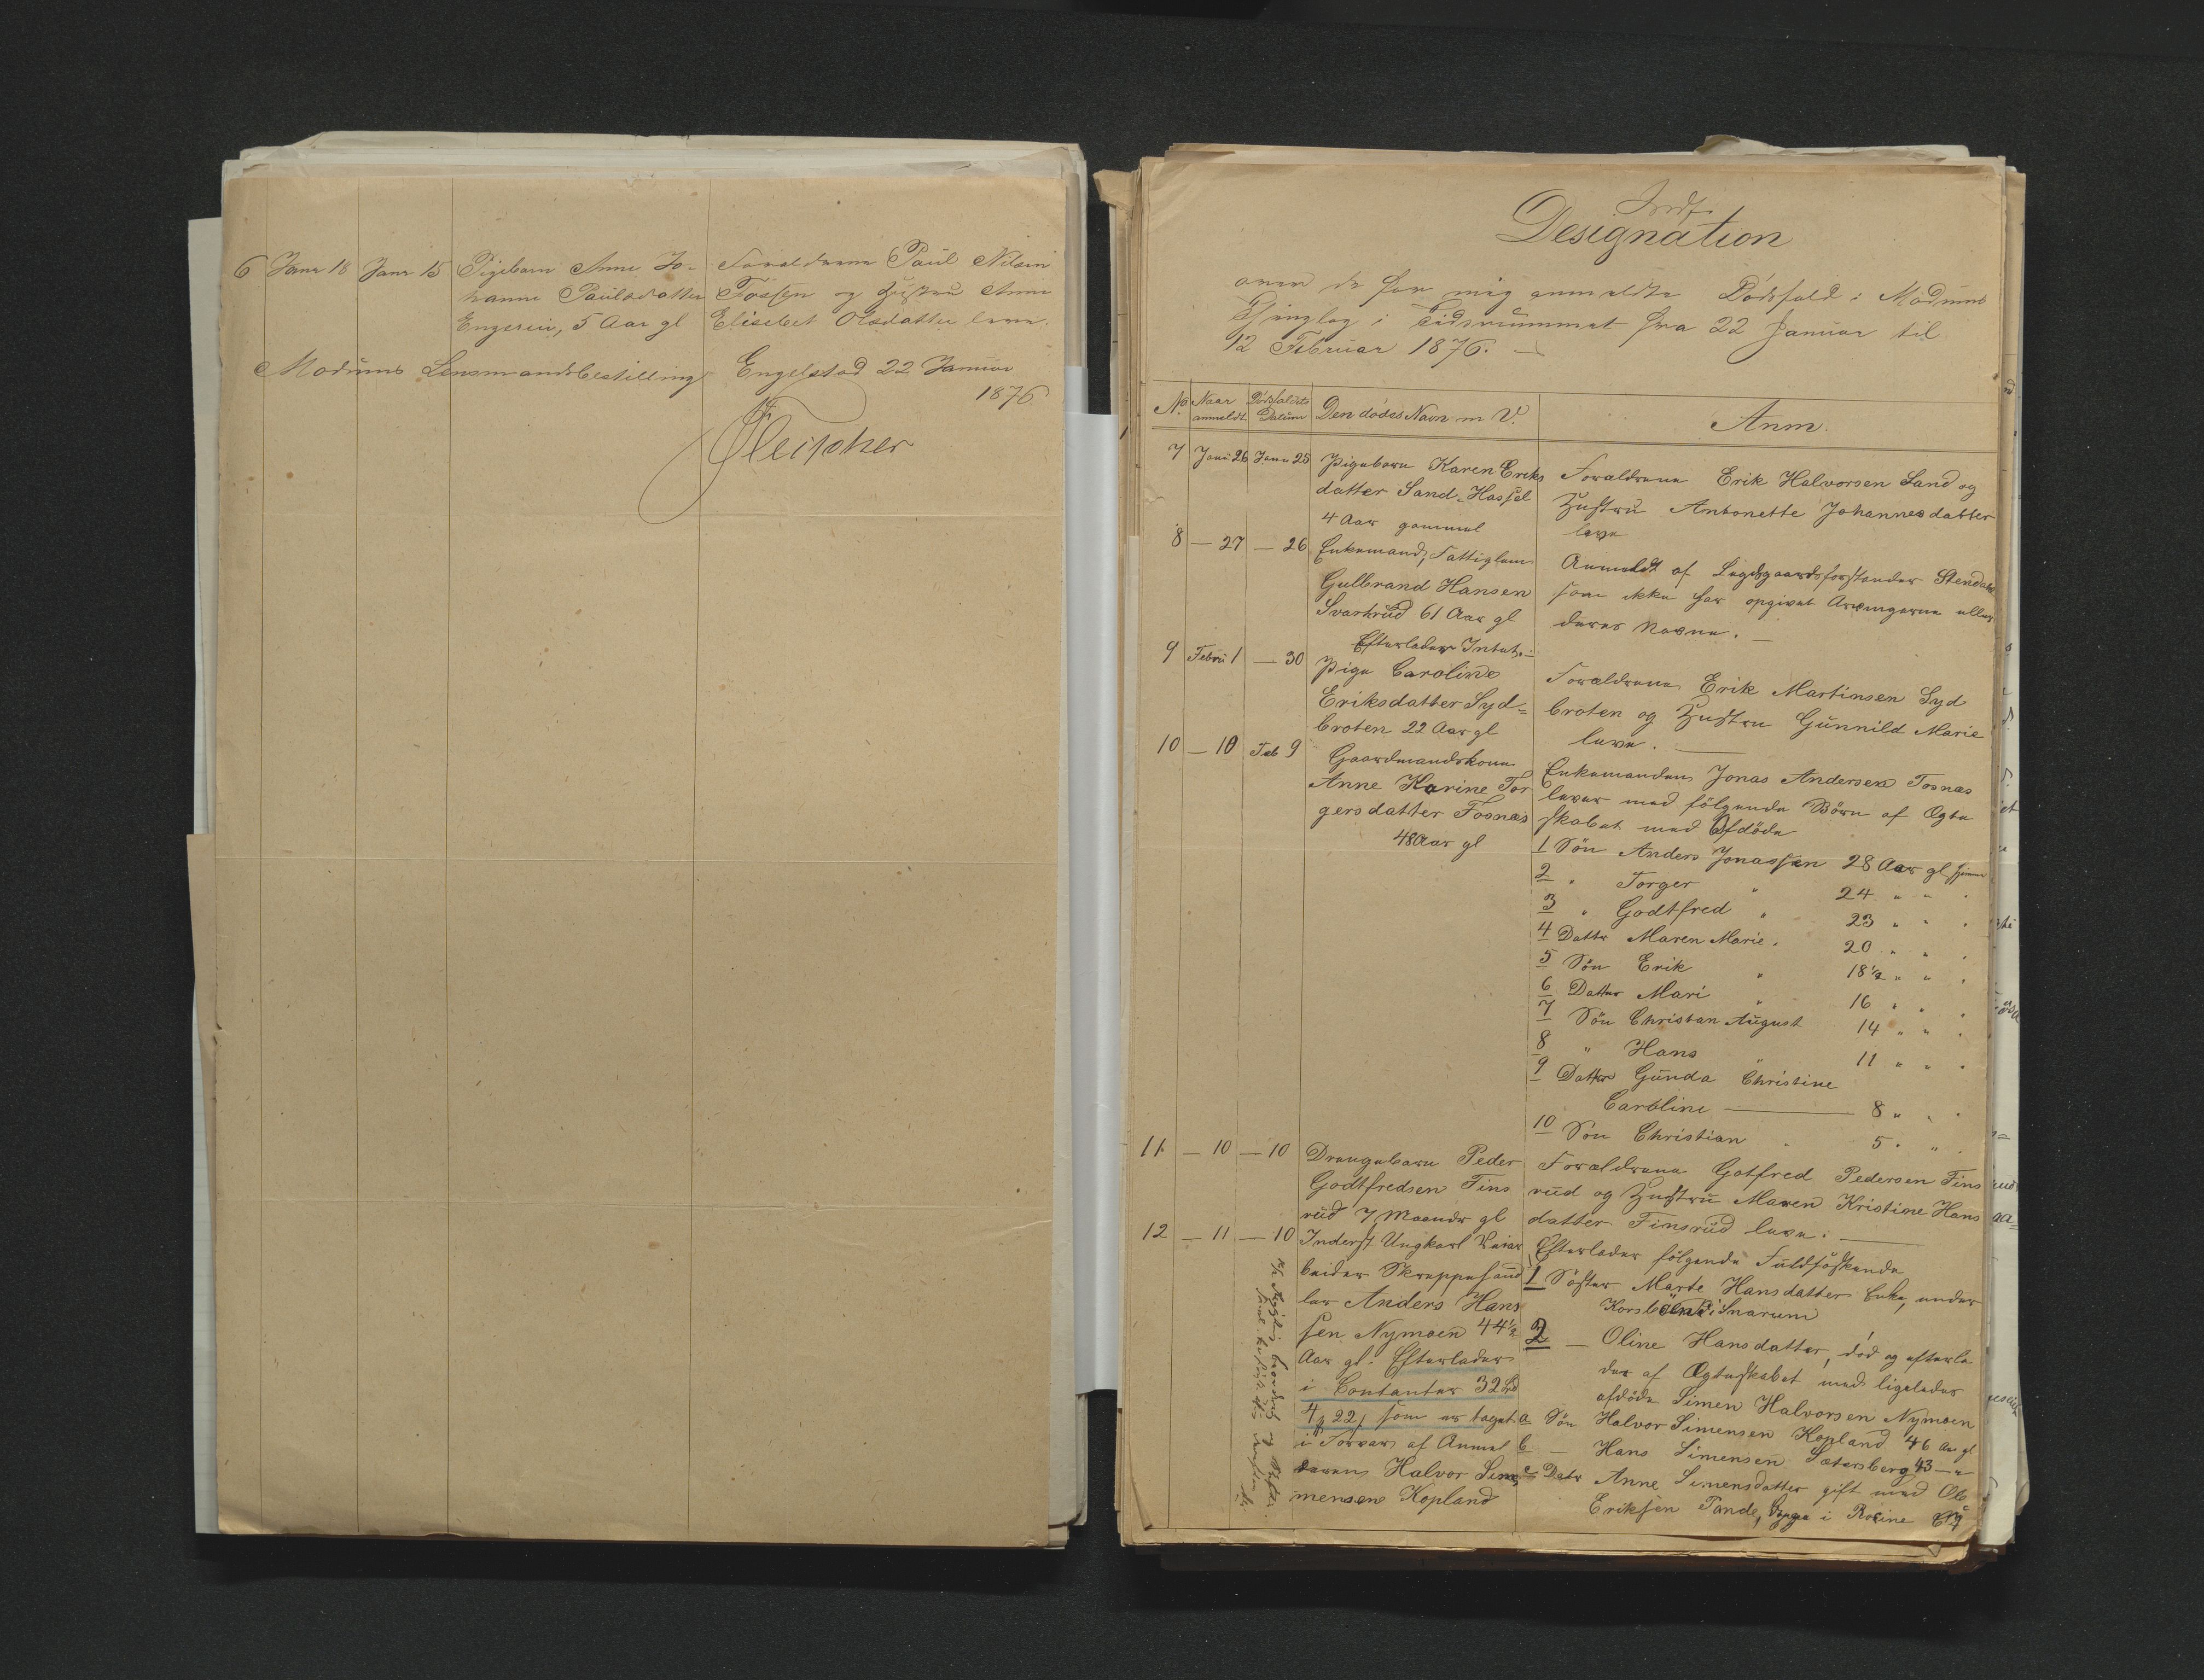 6 Janr 18 Janr 15 Pigebarn Anne Jo- Forældrene Paul Nilsen
hanne Paulsdatter Fossen og Hustru Anne
Engerin, 5 Aar gl Elisebet Olsdatter leve.
Modums Lensmandsbestilling Engelstad 22 Januar
1876
Fleischer
Designation
over de for mig anmeldte Dödsfald i Modums
Thinglag i Tidsrummet fra 22 Januar til
12 Februar 1876. —
No Naar anmeldt. Dödsfaldets Datum Den dödes Navn m V. Anm.
7 Janu 26 Janu 25 Pigebarn Karen Eriks
datter Sand-Hassel
4 Aar gammel
Forældrene Erik Halvorsen Sand og
Hustru Antonette Johannesdatter
leve
8 — 27 — 26 Enkemand, Fattiglem
Gulbrand Hansen
Svartrud 61 Aar gl
Efterlader Intet. —
Anmeldt af Lægdsgaardsforstander Stendahl
som ikke har opgivet Arvingerne eller
deres Navne. —
9 Febru 1 — 30 Pige Caroline
Eriksdatter Syd=
broten 22 Aar gl
Forældrene Erik Martinsen Syd
broten og Hustru Gunnild Marie
leve. —
10 — 10 Feb 9 Gaardmandskone
Anne Karine Tor
gersdatter Fosnæs
48 Aar gl
Enkemanden Jonas Andersen Fosnæs
lever med fölgende Börn af Ægte
skabet med Afdöde
1 Sön Anders Jonassen 28 Aar gl hjemme
2 " Torger " 24 " " "
3 " Godtfred " 23 " " "
4 Dattr Maren Marie " 20 " " "
5 Sön Erik " 18½ " " "
6 Datter Mari " 16 " " "
7 Sön Christan August 14 " " "
8 " Hans " 11 " " "
9 Datter Gunda Christine
Caroline — 8 " " "
10 Sön Christian " 5 " " "
11 — 10 — 10 Drengebarn Peder
Godtfredsen Fins
rud 7 Maaneder gl
Forældrene Gotfred Pedersen Fins
rud og Hustru Maren Kristine Hans
datter Finsrud leve. —
12 — 11 — 10 Inderst Ungkarl Veiar
beider Skreppehand
ler Anders Hans
sen Nymoen 44½
Aar gl. Efterlader
i Contanter 32 Spd
4 ₰ 22 ſ som er taget
i Forvar af Anmel
deren Halvor Si
mensen Kopland
Efterlader fölgende Fuldsöskende
1 Söster Marte Hansdatter Enke, under
i Snarum
2 — Oline Hansdatter, död og efterla
der af Ægteskabet med ligeledes
afdöde Simen Halvorsen Nymoen
a Sön Halvor Simensen Kopland 46 Aar gl
b — Hans Simensen Sætersberg 43 — "
c Datr Anne Simensdatter gift med Ole
Eriksen Tande, i